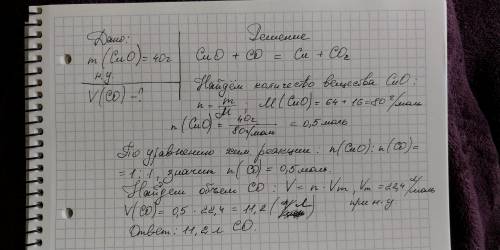 Дано:
m(CuO)=40г
н.у
V(CO)-?
Решение
CuO + CO = Cu + CO₂
Найдем количество вещества CuO:
n = m/M, M(CuO) = 64 + 16 = 80 г/моль
n(CuO) = 40г/80г/моль = 0,5 моль
По уравнению хим реакции: n(CuO):n(CO)=
= 1:1, значит n(CO) = 0,5 моль.
Найдем объем CO: V = n·Vm, Vm = 22,4 л/моль
при н.у
V(CO) = 0,5 · 22,4 = 11,2 (л)
Ответ: 11,2 л CO.